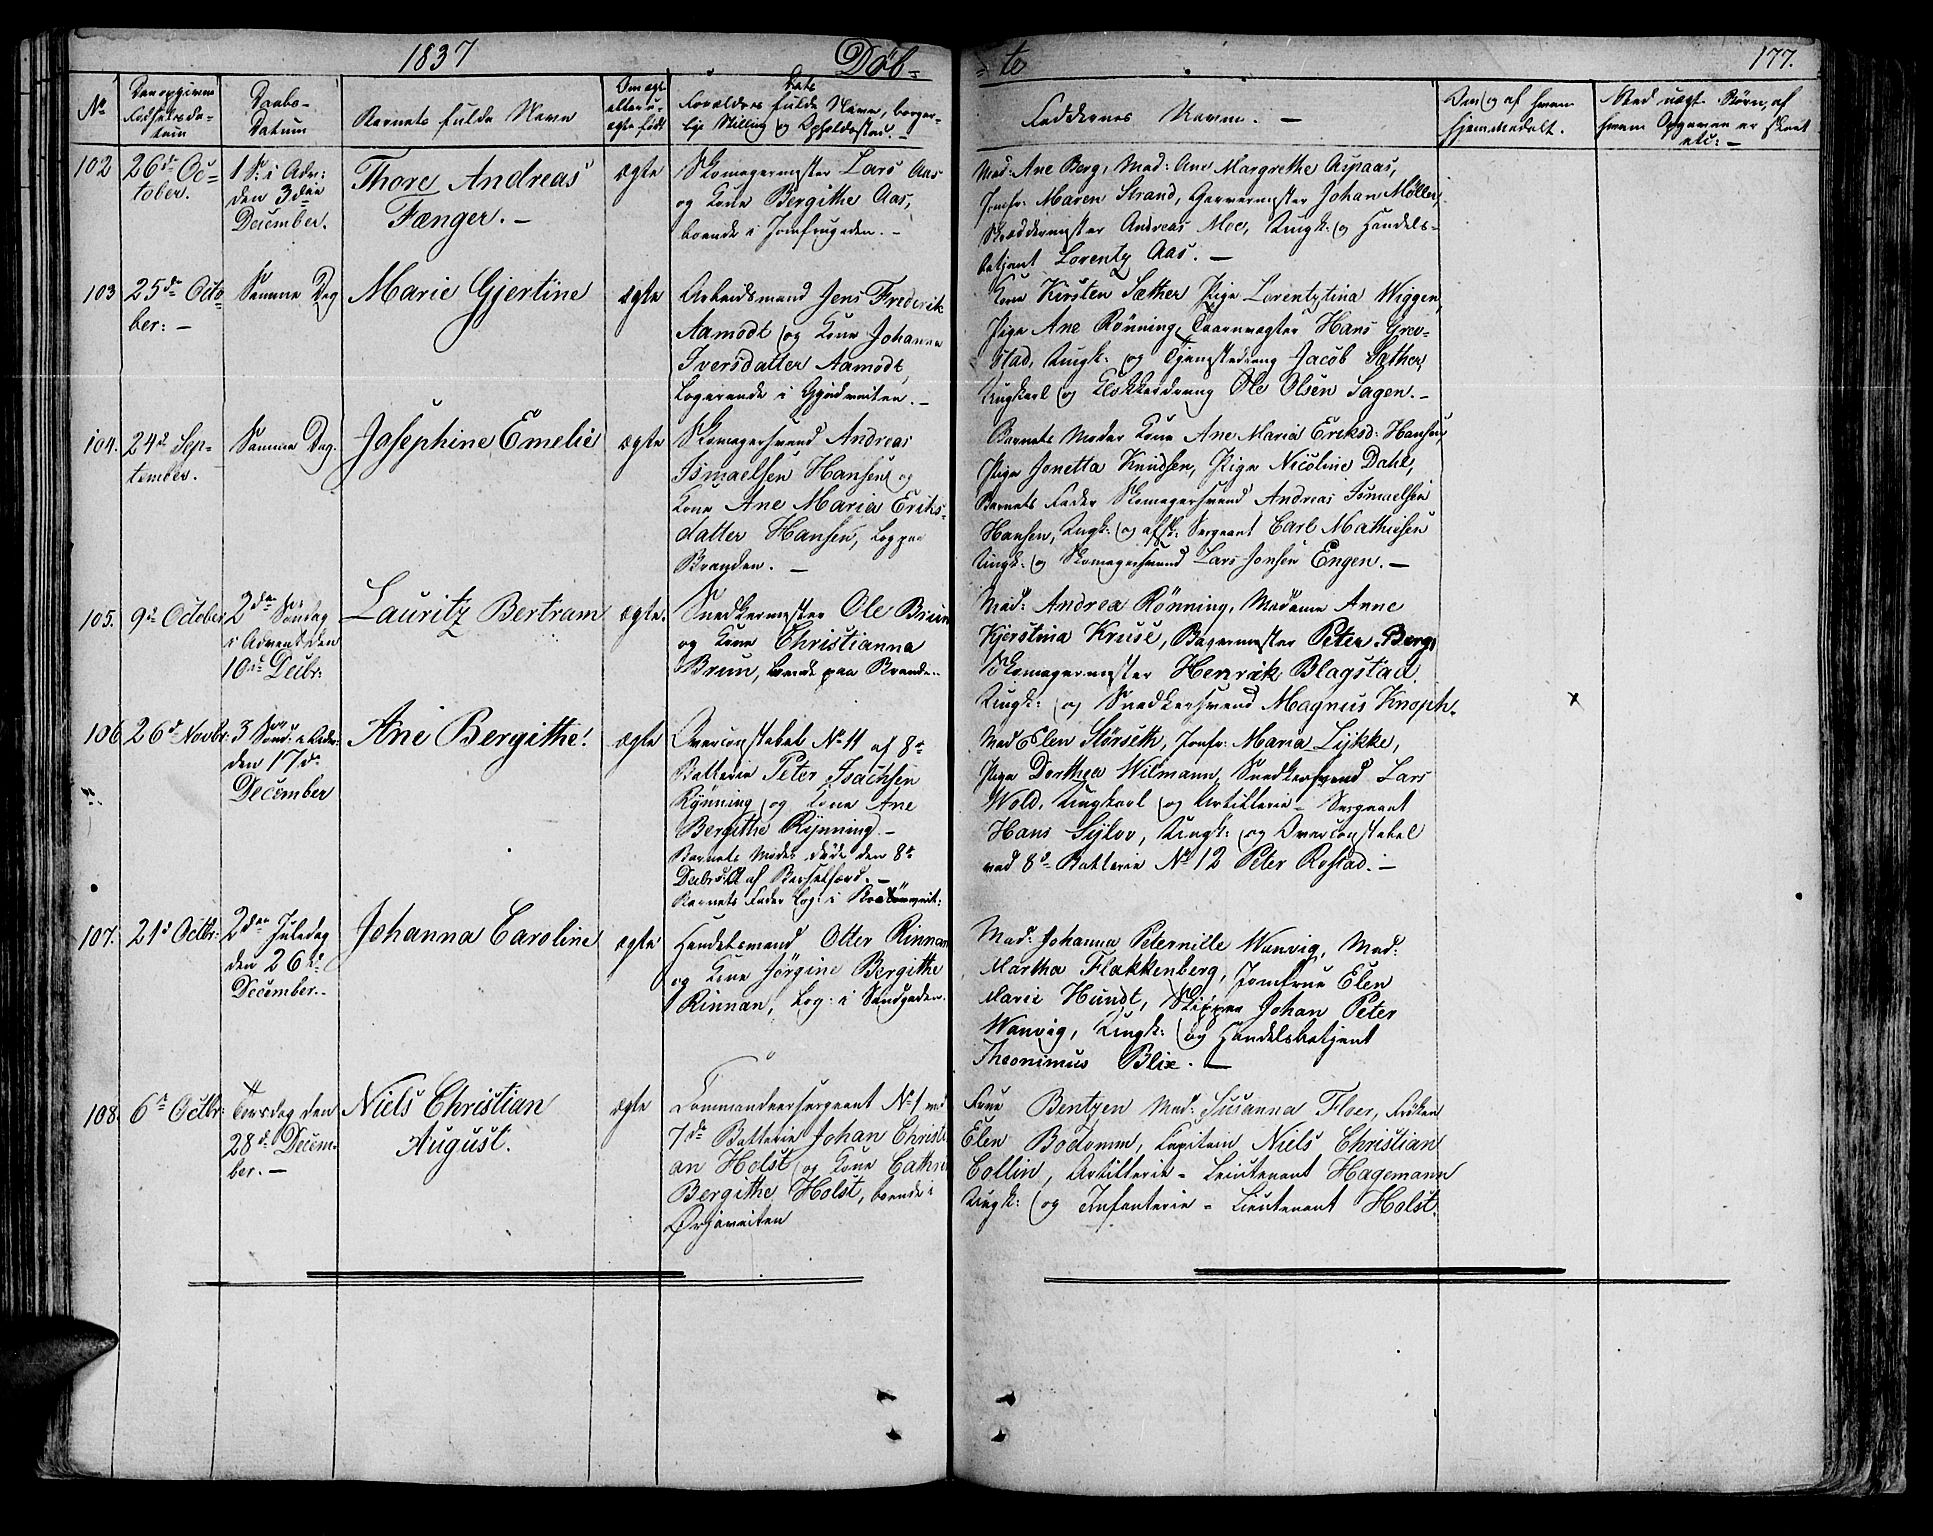 1837 Døb-
-te 177.
No
Den opgivne
Fødselsda-
tum
Daabs-
Datum
Barnets fulde Navn
Om ægte
eller u-
ægte født
Dets
Forældres fulde Navne, borger-
lige Stilling og Opholdssted. -
Faddernes Navne. -
Om og af hvem
hjemmedøbt.
Ved uægte Børn, af
hvem Opgaven er skeet
etc: -
102
26de Oc-
tober.
1 S: i Adv:
den 3die
December.
Thore Andreas
Fænger. -
ægte
Skomagermester Lars Aas
og Kone Bergithe Aas,
boende i Jomfrugaden. -
Mad: Ane Berg, Mad: Ane Margrethe Aspaas,
Jomfr: Maren Strand, Garvermester Johan Møller,
Skræddermester Andreas Moe, Ungk: og Handels-
betjent Lorentz Aas. -
103
25de Octo-
ber: -
Samme Dag
Marie Gjertine
ægte
Arbeidsmand Jens Frederik
Aamodt og Kone Johanna
Iversdatter Aamodt,
Logerende i
Kone Kirsten Sæther Pige Lorentztina Wiggen,
Pige Ane Rönning, Taarnvægter Hans Grev-
stad, Ungk: og Tjenestedreng Jacob Sæther,
Ungkarl og Klokkerdreng Ole Olsen Sagen. -
104.
24de Sep-
tember.
Samme Dag.
Josephine Emelie
ægte
Skomagersvend Andreas
Ismaelsen Hansen og
Kone Ane Maria Eriks-
datter Hansen, Log paa
Branden. -
Barnets Moder Kone Ane Maria Eriksd: Hansen,
Pige Jonetta Knudsen, Pige Nicoline Dahl,
Barnets Fader Skomagersvend Andreas Ismaelsen
Hansen, Ungk: og afsk: Sergeant Carl Mathiesen
Ungk: og Skomagersvend Lars Jonsen Engen. -
105.
9de October
2den Søndag
i Advent den
10de Decbr:
Lauritz Bertram
ægte.
Snedkermester Ole Brun
og Kone Christianna
Brun, boende paa Brande..
Mad: Andrea Rönning, Madame Anne
Kjerstina Kruse, Bagermester Peter Berg,
Skomagermester Henrik Blagstad,
Ungk: og Snedkersvend Magnus Knoph.
x
106
26de Novbr:
3 Sønd: i Adv:
den 17de
December
Ane Bergithe!
ægte
Overconstabel No 11 af 8de
Batterie Peter Isachsen
Rÿnning og Kone Ane
Bergithe Rÿnning. -
Barnets Moder døde den 8de
Decbr: af Barselfærd. -
Barnets Fader Log: i
Mad Elen Störseth, Jomfr: Maria Lÿkke,
Pige Dorthea Wilmann, Snedkersvend Lars
Wold, Ungkarl og Artillerie-Sergeant
Hans Sylov, Ungk: og Overconstabel
ved 8de Batterie No 12 Peter Rostad. -
107.
21de Octbr:
2den Juledag
den 26de
December..
Johanna Caroline
ægte
Handelsmand Otter Rinnan
og Kone Jörgine Bergithe
Rinnan, Log: i Sandgaden.
Mad: Johanna Peternille Wanvig, Mad:
Martha Flakkenberg, Jomfrue Elen
Marie Hundt, Skipper Johan Peter
Wanvig, Ungk: og Handelsbetjent
Theonimus Blix. -
108.
6te Octbr:
Torsdag den
28de Decem-
ber. -
Niels Christian
August.
ægte
Commandeersergeant No 1 ved
7de Batterie Johan Christi
an Holst og Kone Cathri
Bergithe Holst, boende i
Ørjaveiten
Frue Bentzen Mad: Susanna Floer, Frøken
Elen Bodomm, Capitein Niels Christian
Collin, Artillerie-Leiutenant Hagemann
Ungk: og Infanterie-Lieutenant Holst.